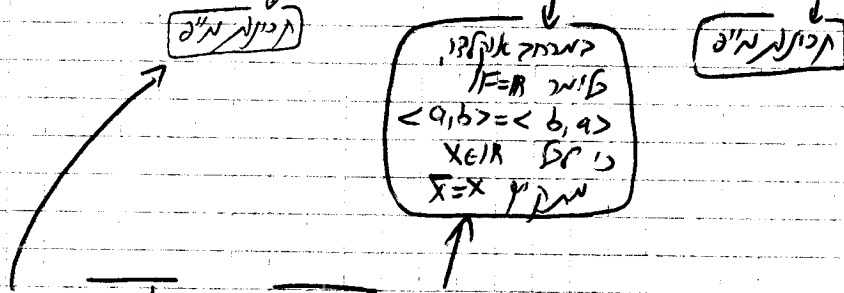 תכונת מ"פ
במרחב אוקלידי,
כלומר F=ℝ
<a,b>=<b,a>
כי לכל x∈ℝ
מתקיים x̄=x
תכונת מ"פ